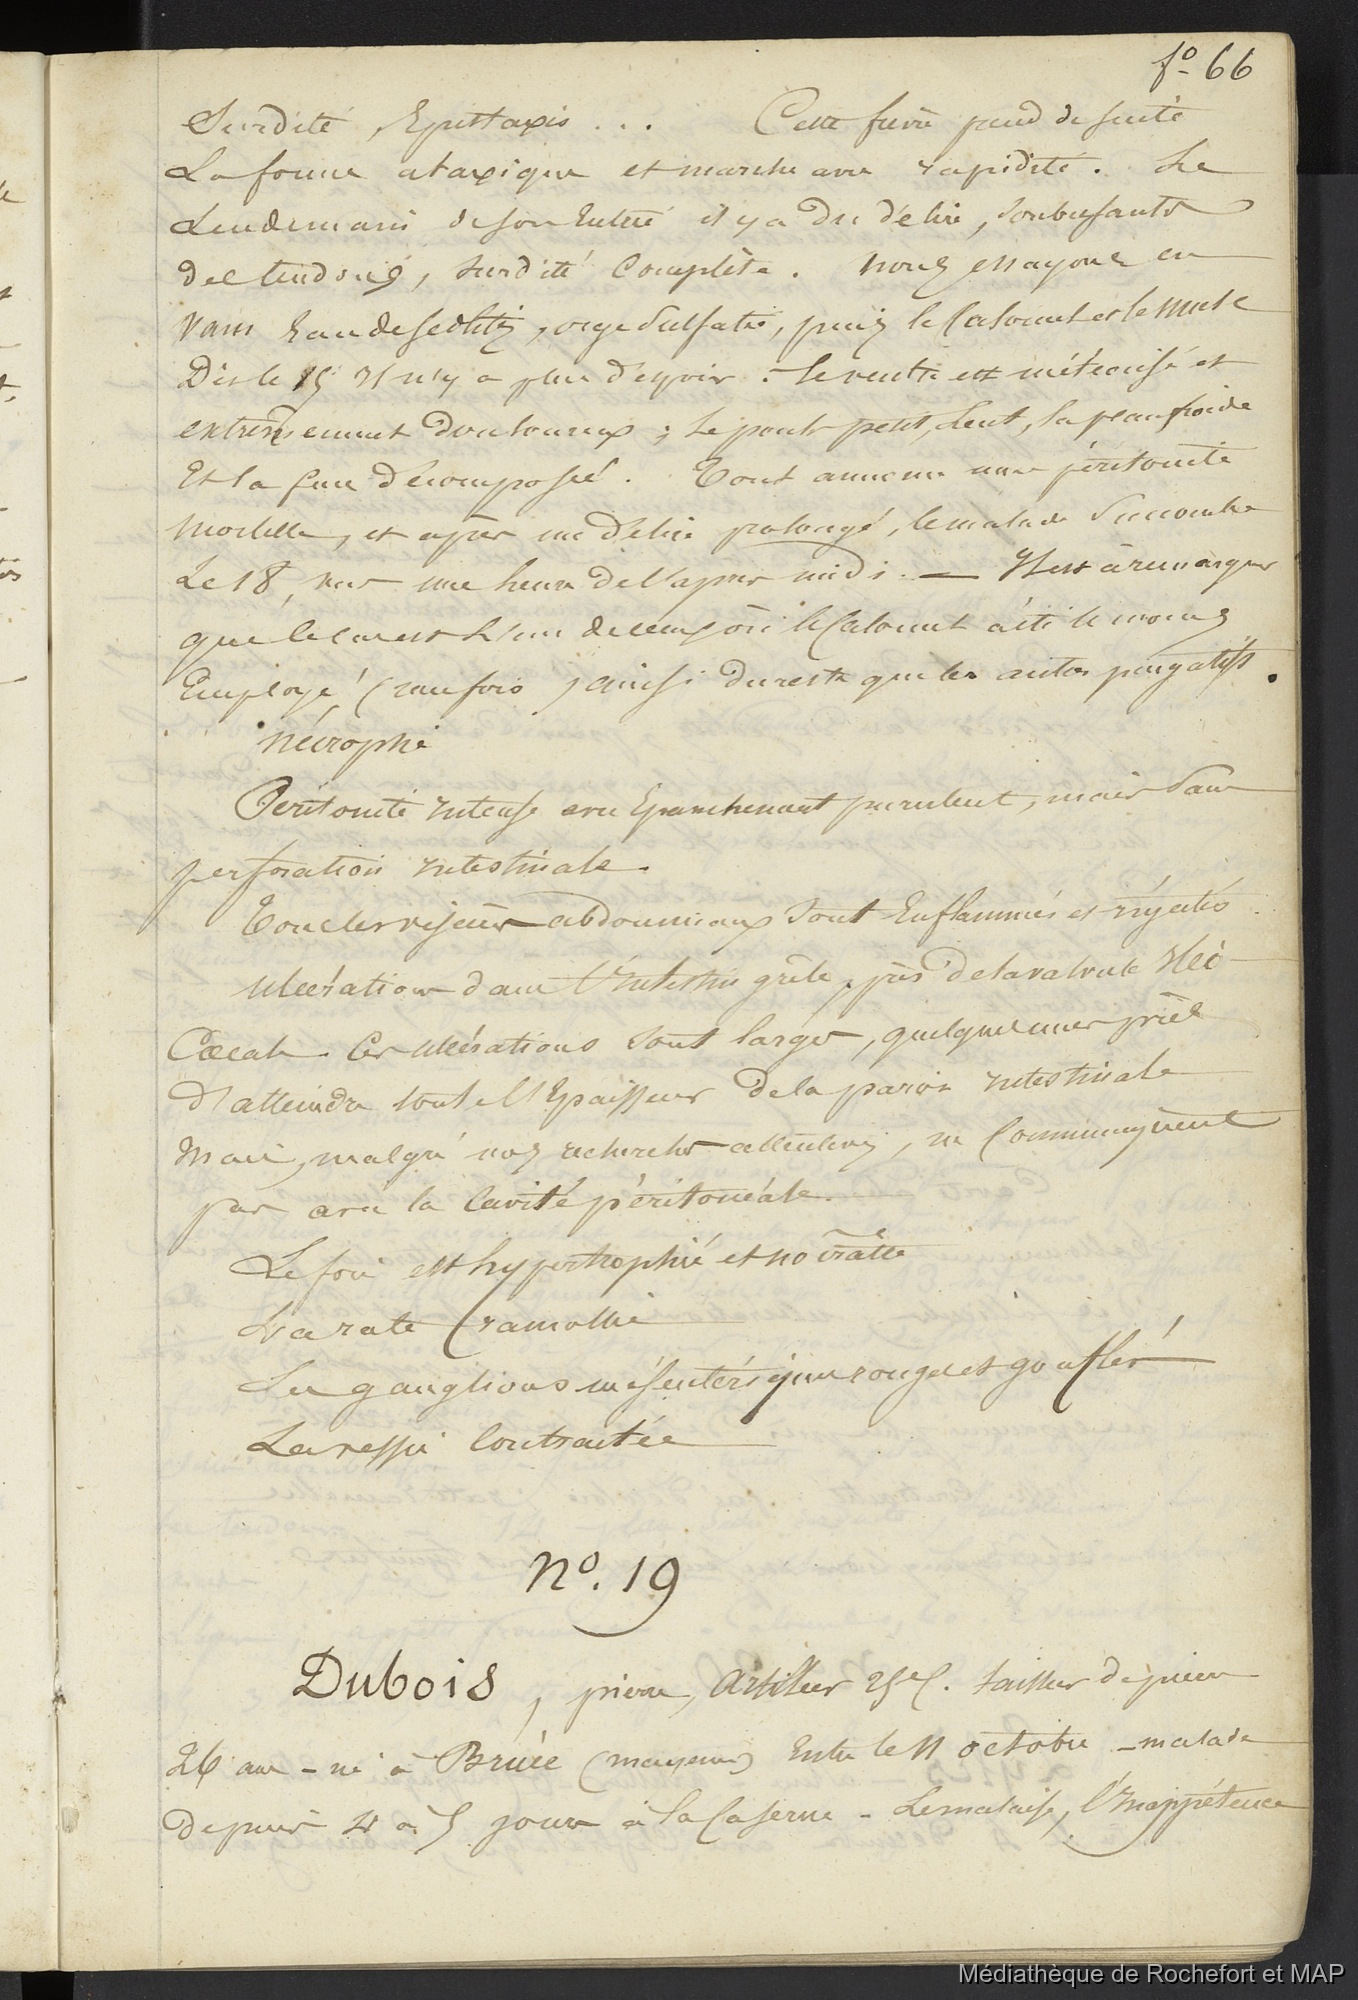 fº 66
Surdité, Epistaxis ... Cette fièvre prend de suite
La forme ataxique et marche avec rapidité. Le
Lendemain de son Entrée il y a du délire, soubresauts
des tendons, surdité complète. nous essayons en
vain Eau de Sedlitz, orge Sulfatée, puis le Calomel et le musc
Dès le 15 il n'y a plus d'espoir. Le ventre est météorisé et
extrêmement douloureux ; le pouls petit, lent, la peau froide
Et la face décomposée. Tout annonce une péritonite
mortelle, et après un délire prolongé, le malade succombe
Le 18, vers une heure de l'après midi. — Il est à remarquer
que le cas est l'un de ceux où le Calomel a été le moins
Employé (une fois) ainsi du reste que les autres purgatifs.
nécropsie
Péritonite intense avec Epanchement purulent, mais sans
perforation intestinale.
Tous les viscères abdominaux sont Enflammés et injectés
Ulcérations dans l'Intestin grêle, près de la valvule Iléo
Cœcale. Ces ulcérations sont larges, quelques unes près
d'atteindre toute l'Epaisseur de la paroi intestinale
Mais, malgré nos recherches attentives, ne communiquent
pas avec la cavité péritonéale.
Le foie est hypertrophié et noirâtre
La rate ramollie
Les ganglions mésentériques rouges et gonflés
La vessie contractée
Nº. 19
Dubois, pierre, Artilleur 25e C. tailleur de pierre
26 ans - né à Brée (mayenne) Entre le 11 octobre - malade
depuis 4 à 5 jours à la Caserne - Le malaise, l'Inappétence
Médiathèque de Rochefort et MAP